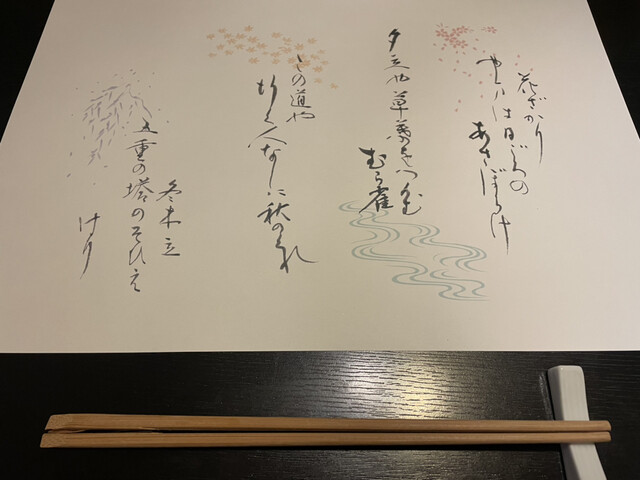 花ざかり
やまは日ごろの
あさぼらけ
夕立や草葉をつかむ
むら雀
この道や
行く人なしに秋のくれ
冬木立
五重の塔のそひえ
けり